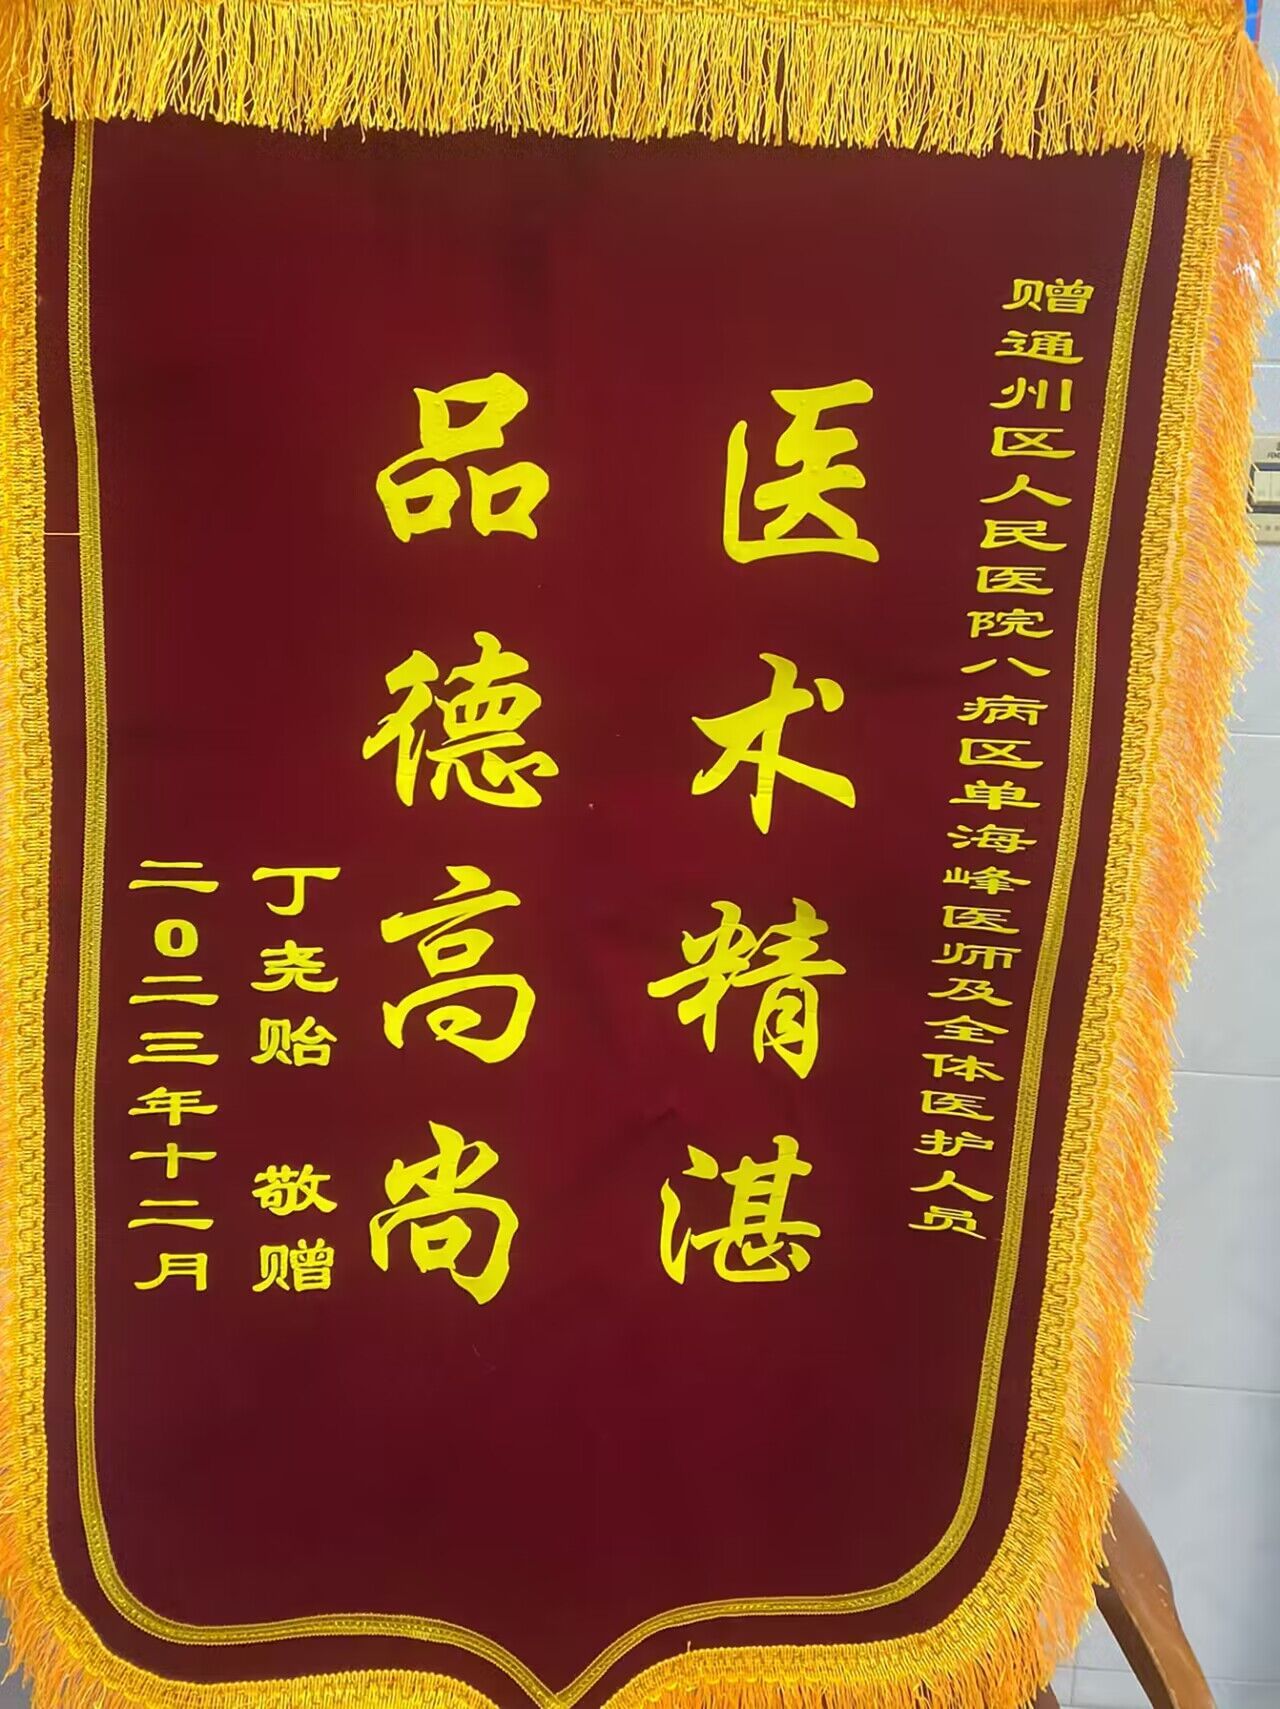 赠通州区人民医院八病区单海峰医师及全体医护人员
医术精湛
品德高尚
丁尧贻 敬赠
二0二三年十二月